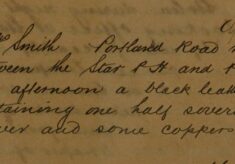 Smith Portland Road
ween the Star P H and
afternoon a black leat
taining one half sover
ver and some coppers